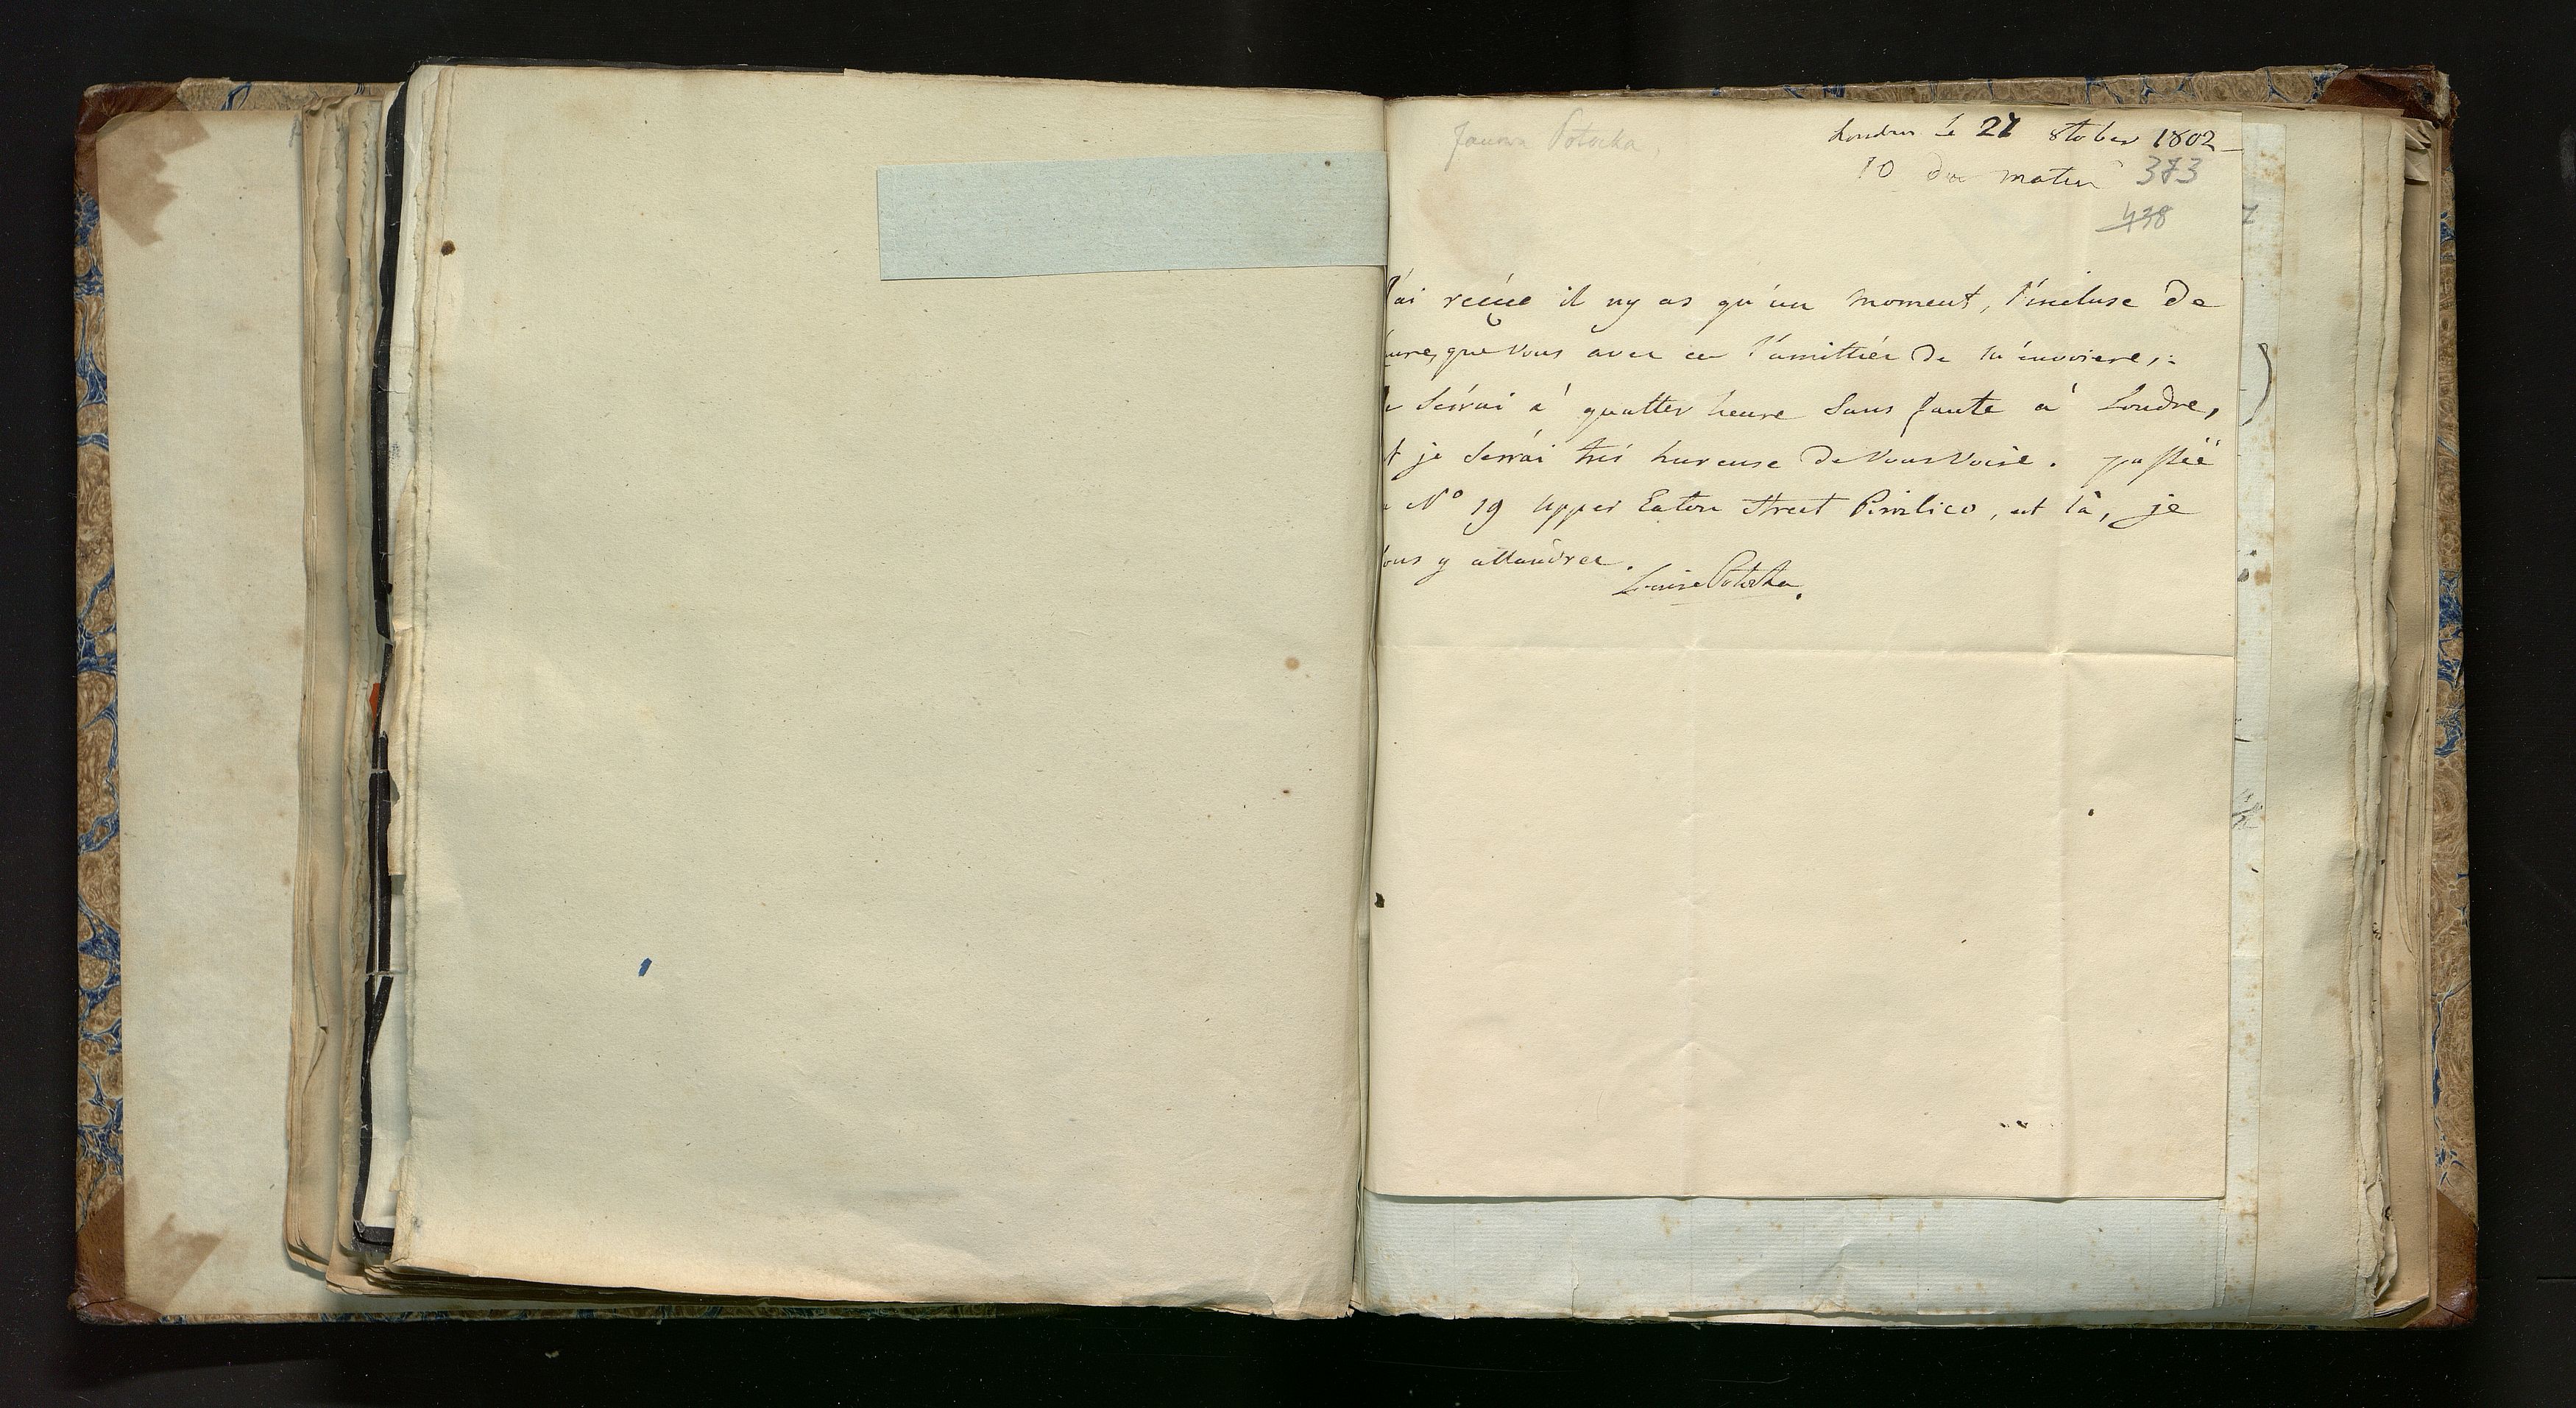 Janina Potocka,
Londres le 27 8tober 1802
10 du matin 373
438
J'ai recüe il ny as qu'un moment, l'incluse de
que Vous avee eu l'amittiée de m'envoiere,
Serrai a' quatter heure Sans faute a' Londre,
et je Serrai trés hureuse de Vous Voire.
N° 19 Upper Eaton Street Pimlico, et là, je
Vous y attandree.
Louise Potocka.